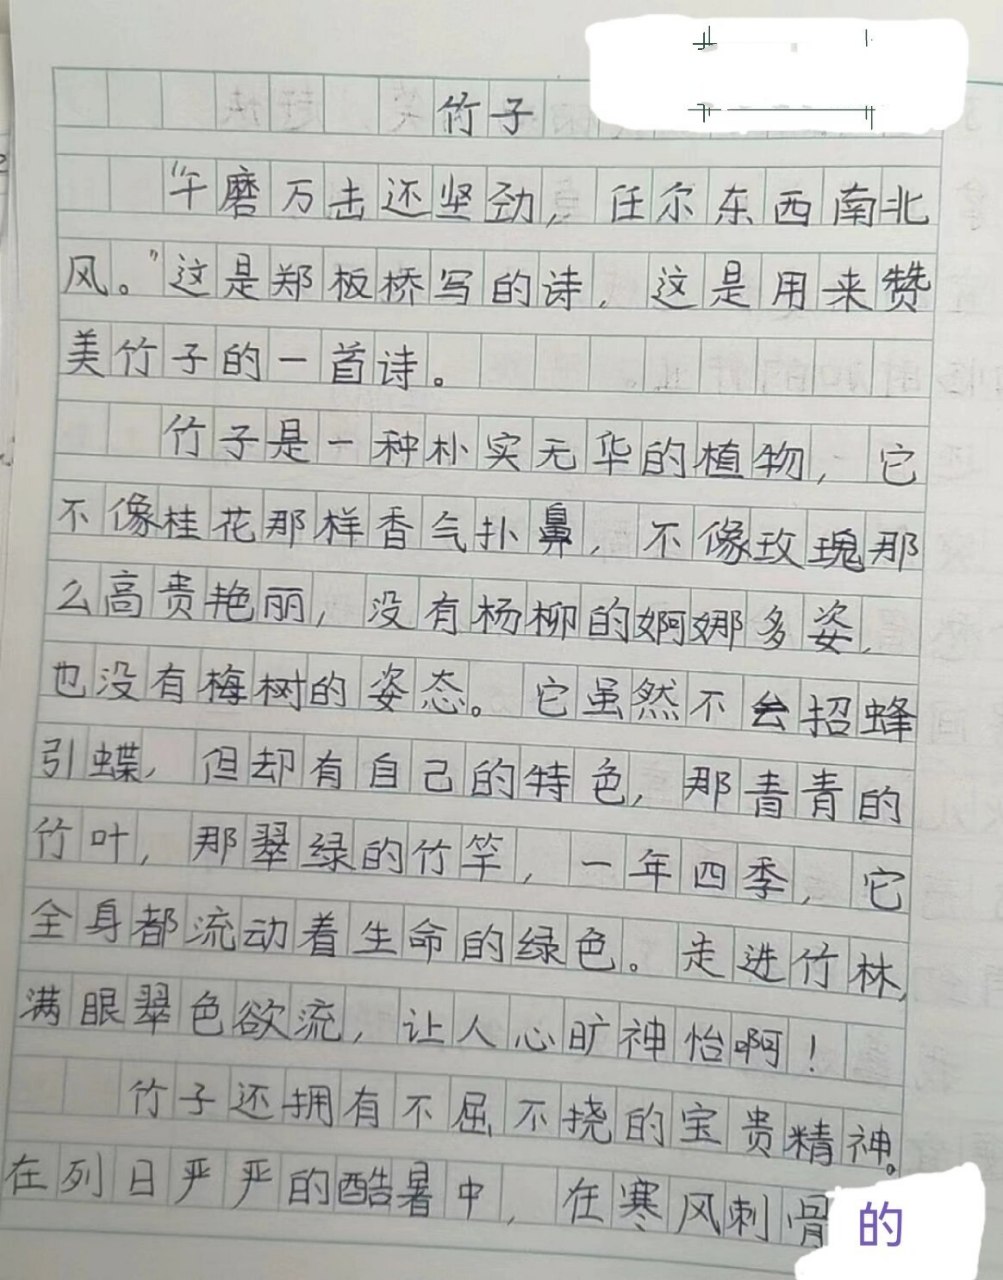 竹子
“千磨万击还坚劲，任尔东西南北
风。”这是郑板桥写的诗，这是用来赞
美竹子的一首诗。
竹子是一种朴实无华的植物，它
不像桂花那样香气扑鼻，不像玫瑰那
么高贵艳丽，没有杨柳的婀娜多姿，
也没有梅树的姿态。它虽然不会招蜂
引蝶，但却有自己的特色，那青青的
竹叶，那翠绿的竹竿，一年四季，它
全身都流动着生命的绿色。走进竹林，
满眼翠色欲流，让人心旷神怡啊！
竹子还拥有不屈不挠的宝贵精神。
在列日严严的酷暑中，在寒风刺骨的